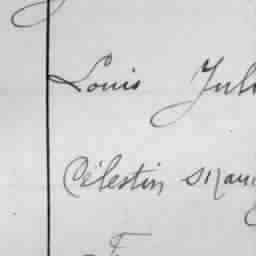 Louis Jul
Célestin Mau
F